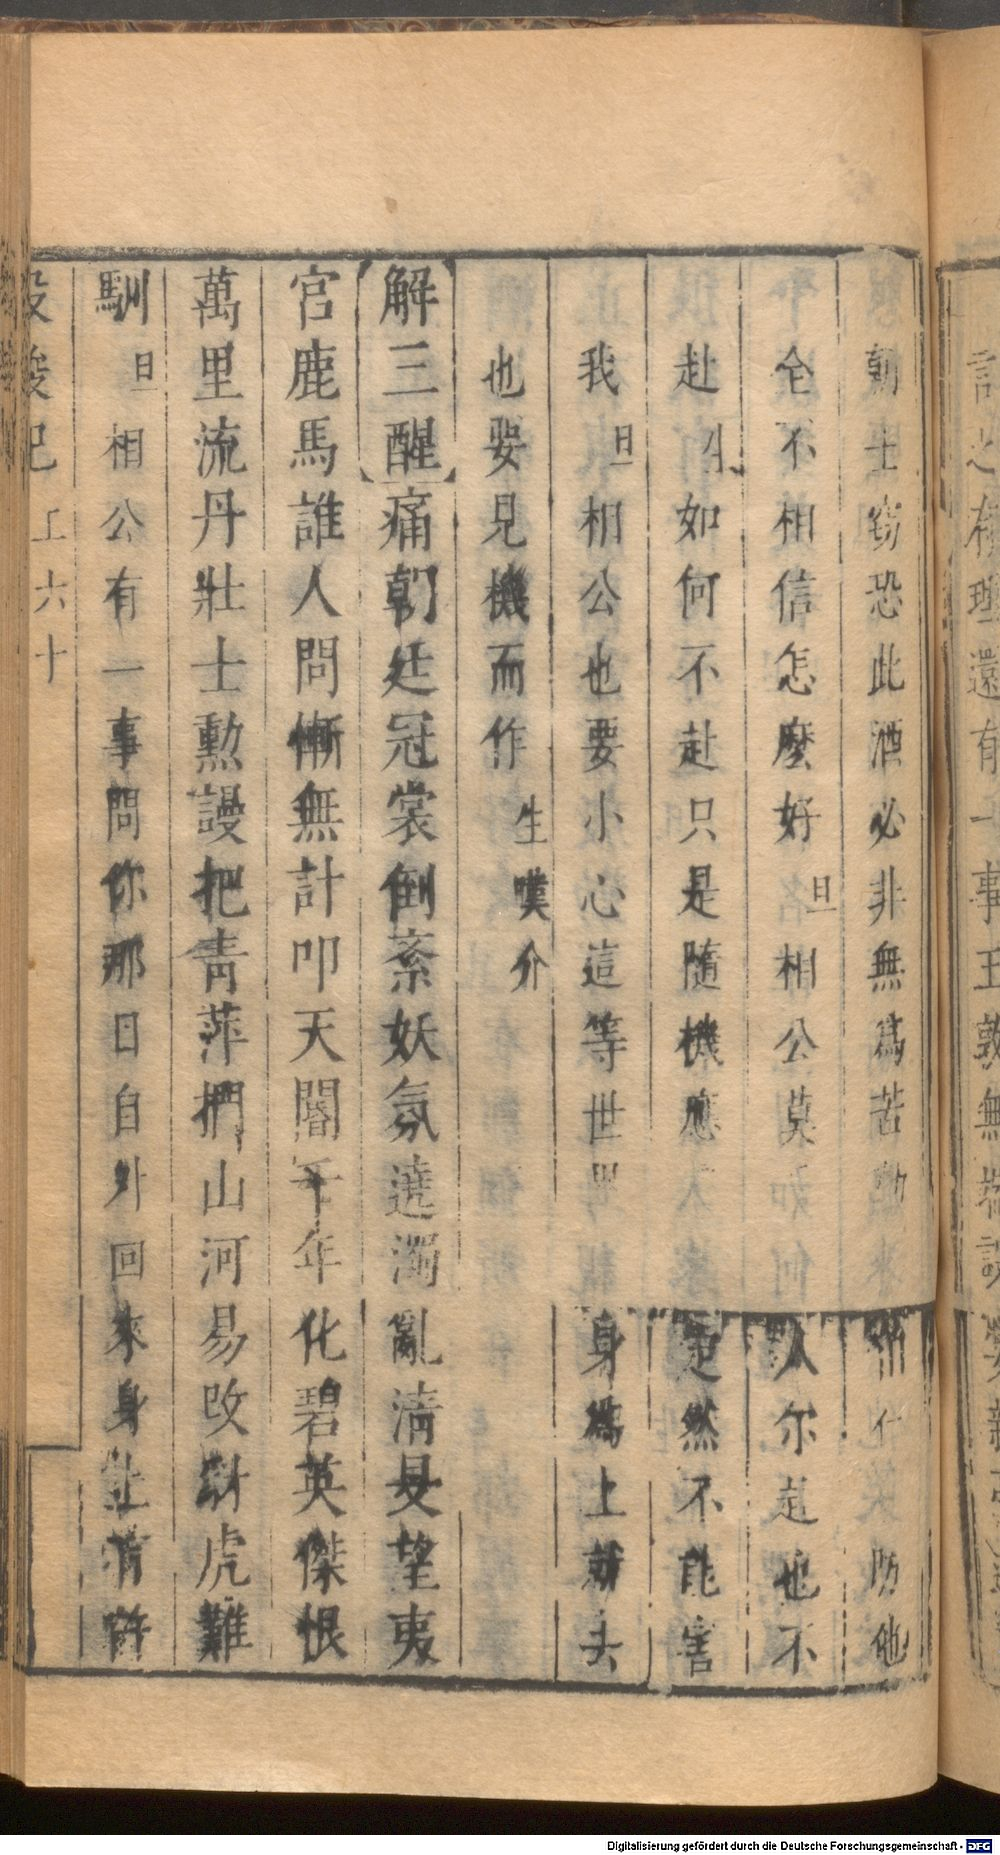 朝士窃恐此酒必非無為苦勸 防他
仝不相信怎麼好旦相公莫如何 人尔赴也不
赴生如何不赴只是隨機應 是然不能害
我旦相公也要小心這等世界 身為上
也要見機而作生嘆介
解三醒痛朝廷冠裳倒紊妖氛遶濁亂清旻望夷
官鹿馬誰人問慚無計叩天閽年年化碧英傑恨
萬里流丹壯士勳謾把青萍捫山河易改豺虎難
馴旦相公有一事問你那日自外回來身上
投梭記 上 六十
Digitalisierung gefördert durch die Deutsche Forschungsgemeinschaft - DFG